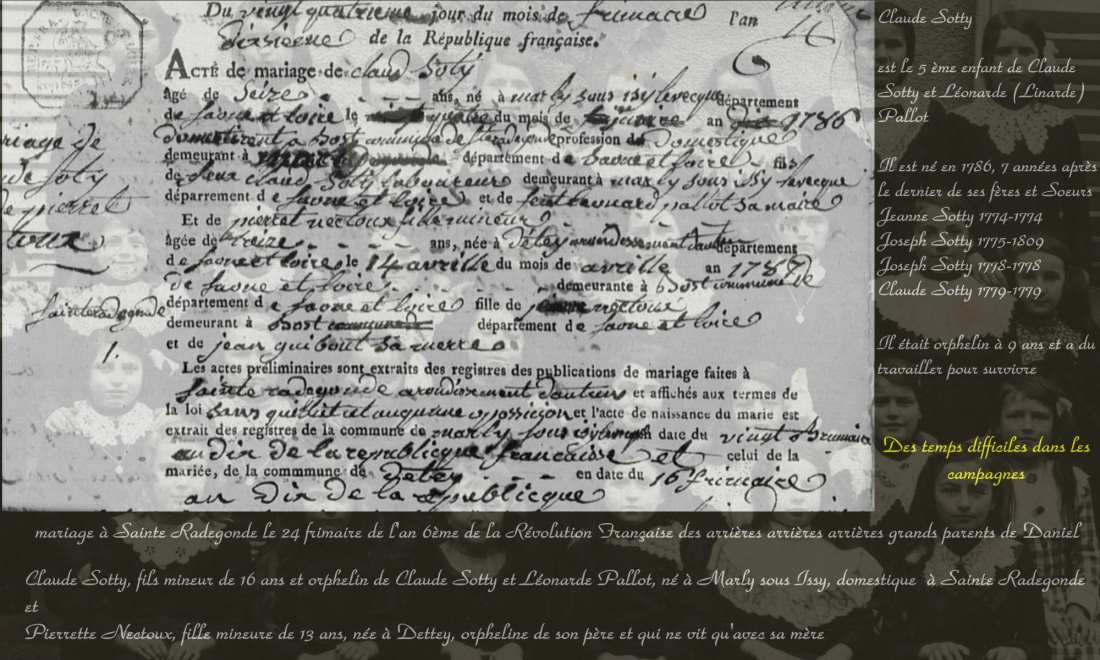 Du vingt quatrieme jour du mois de frimaire l'an
dixieme de la République française.
ACTE de mariage de claud Soty
âgé de Seize ans, né à marly sous issy levecque département
de saone et loire le quatre du mois de an 1786
domestique a post commune de Ste radegonde profession de Domestique
demeurant à département de Saone et loire fils
de feux claud Soty laboureur demeurant à marly sous issy levecque
département de saone et loire et de feue leonard pallot sa maire
Et de pierret nectoux fille mineur
âgée de treize ans, née à detey arondissement d'autun département
de saone et loire le 14 avrille du mois de avrille an 1789
de saone et loire demeurante à post commune de
département de saone et loire fille de nectoux
demeurant à post département de saone et loire
et de jean guibout sa merre
Les actes préliminaires sont extraits des registres des publications de mariage faites à
Sainte radegonde arondissement d'autun et affichés aux termes de
la loi Sans opposicion et l'acte de naissance du marie est
extrait des registres de la commune de marly sous issy en date du vingt Brumaire
an Dix de la republicque francaisse et celui de la
mariée, de la commmune de Detey en date du 16 frimaire
an Dix de la republicque
mariage de
de Soty
de pierret
toux
Sainte radegonde
1.
Claude Sotty
est le 5 ème enfant de Claude
Sotty et Léonarde (Linarde)
Pallot
Il est né en 1786, 7 années après
le dernier de ses fères et Soeurs
Jeanne Sotty 1774-1774
Joseph Sotty 1775-1809
Joseph Sotty 1778-1778
Claude Sotty 1779-1779
Il était orphelin à 9 ans et a du
travailler pour survivre
Des temps difficiles dans les
campagnes
mariage à Sainte Radegonde le 24 frimaire de l'an 6ème de la Révolution Française des arrières arrières arrières grands parents de Daniel
Claude Sotty, fils mineur de 16 ans et orphelin de Claude Sotty et Léonarde Pallot, né à Marly sous Issy, domestique à Sainte Radegonde
et
Pierrette Nectoux, fille mineure de 13 ans, née à Dettey, orpheline de son père et qui ne vit qu'avec sa mère